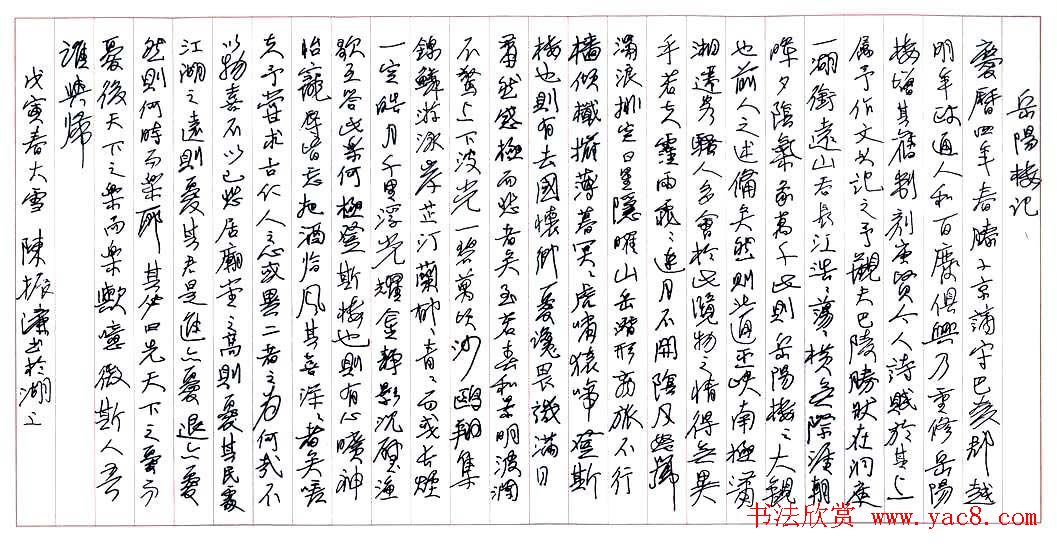 岳陽樓記
慶曆四年春滕子京謫守巴陵郡越
明年政通人和百廢俱興乃重修岳陽
樓增其舊制刻唐賢今人詩賦於其上
屬予作文以記之予觀夫巴陵勝狀在洞庭
一湖銜遠山吞長江浩〻蕩〻橫無際涯朝
暉夕陰氣象萬千此則岳陽樓之大觀
也前人之述備矣然則北通巫峽南極瀟
湘遷客騷人多會於此覽物之情得無異
乎若夫霪雨霏〻連月不開陰風怒號
濁浪排空日星隱曜山岳潛形商旅不行
檣傾檝摧薄暮冥〻虎嘯猿啼登斯
樓也則有去國懷鄉憂讒畏譏滿目
蕭然感極而悲者矣至若春和景明波瀾
不驚上下波光一碧萬頃沙鷗翔集
錦鱗游泳岸芷汀蘭郁〻青〻而或長煙
一空皓月千里浮光耀金靜影沉璧漁
歌互答此樂何極登斯樓也則有心曠神
怡寵辱皆忘把酒臨風其喜洋〻者矣嗟
夫予嘗求古仁人之心或異二者之為何哉不
以物喜不以己悲居廟堂之高則憂其民處
江湖之遠則憂其君是進亦憂退亦憂
然則何時而樂耶其必曰先天下之憂而
憂後天下之樂而樂歟噫微斯人吾
誰與歸
戊寅春大雪 陳振濂書於湖上
书法欣赏 www.yac8.com